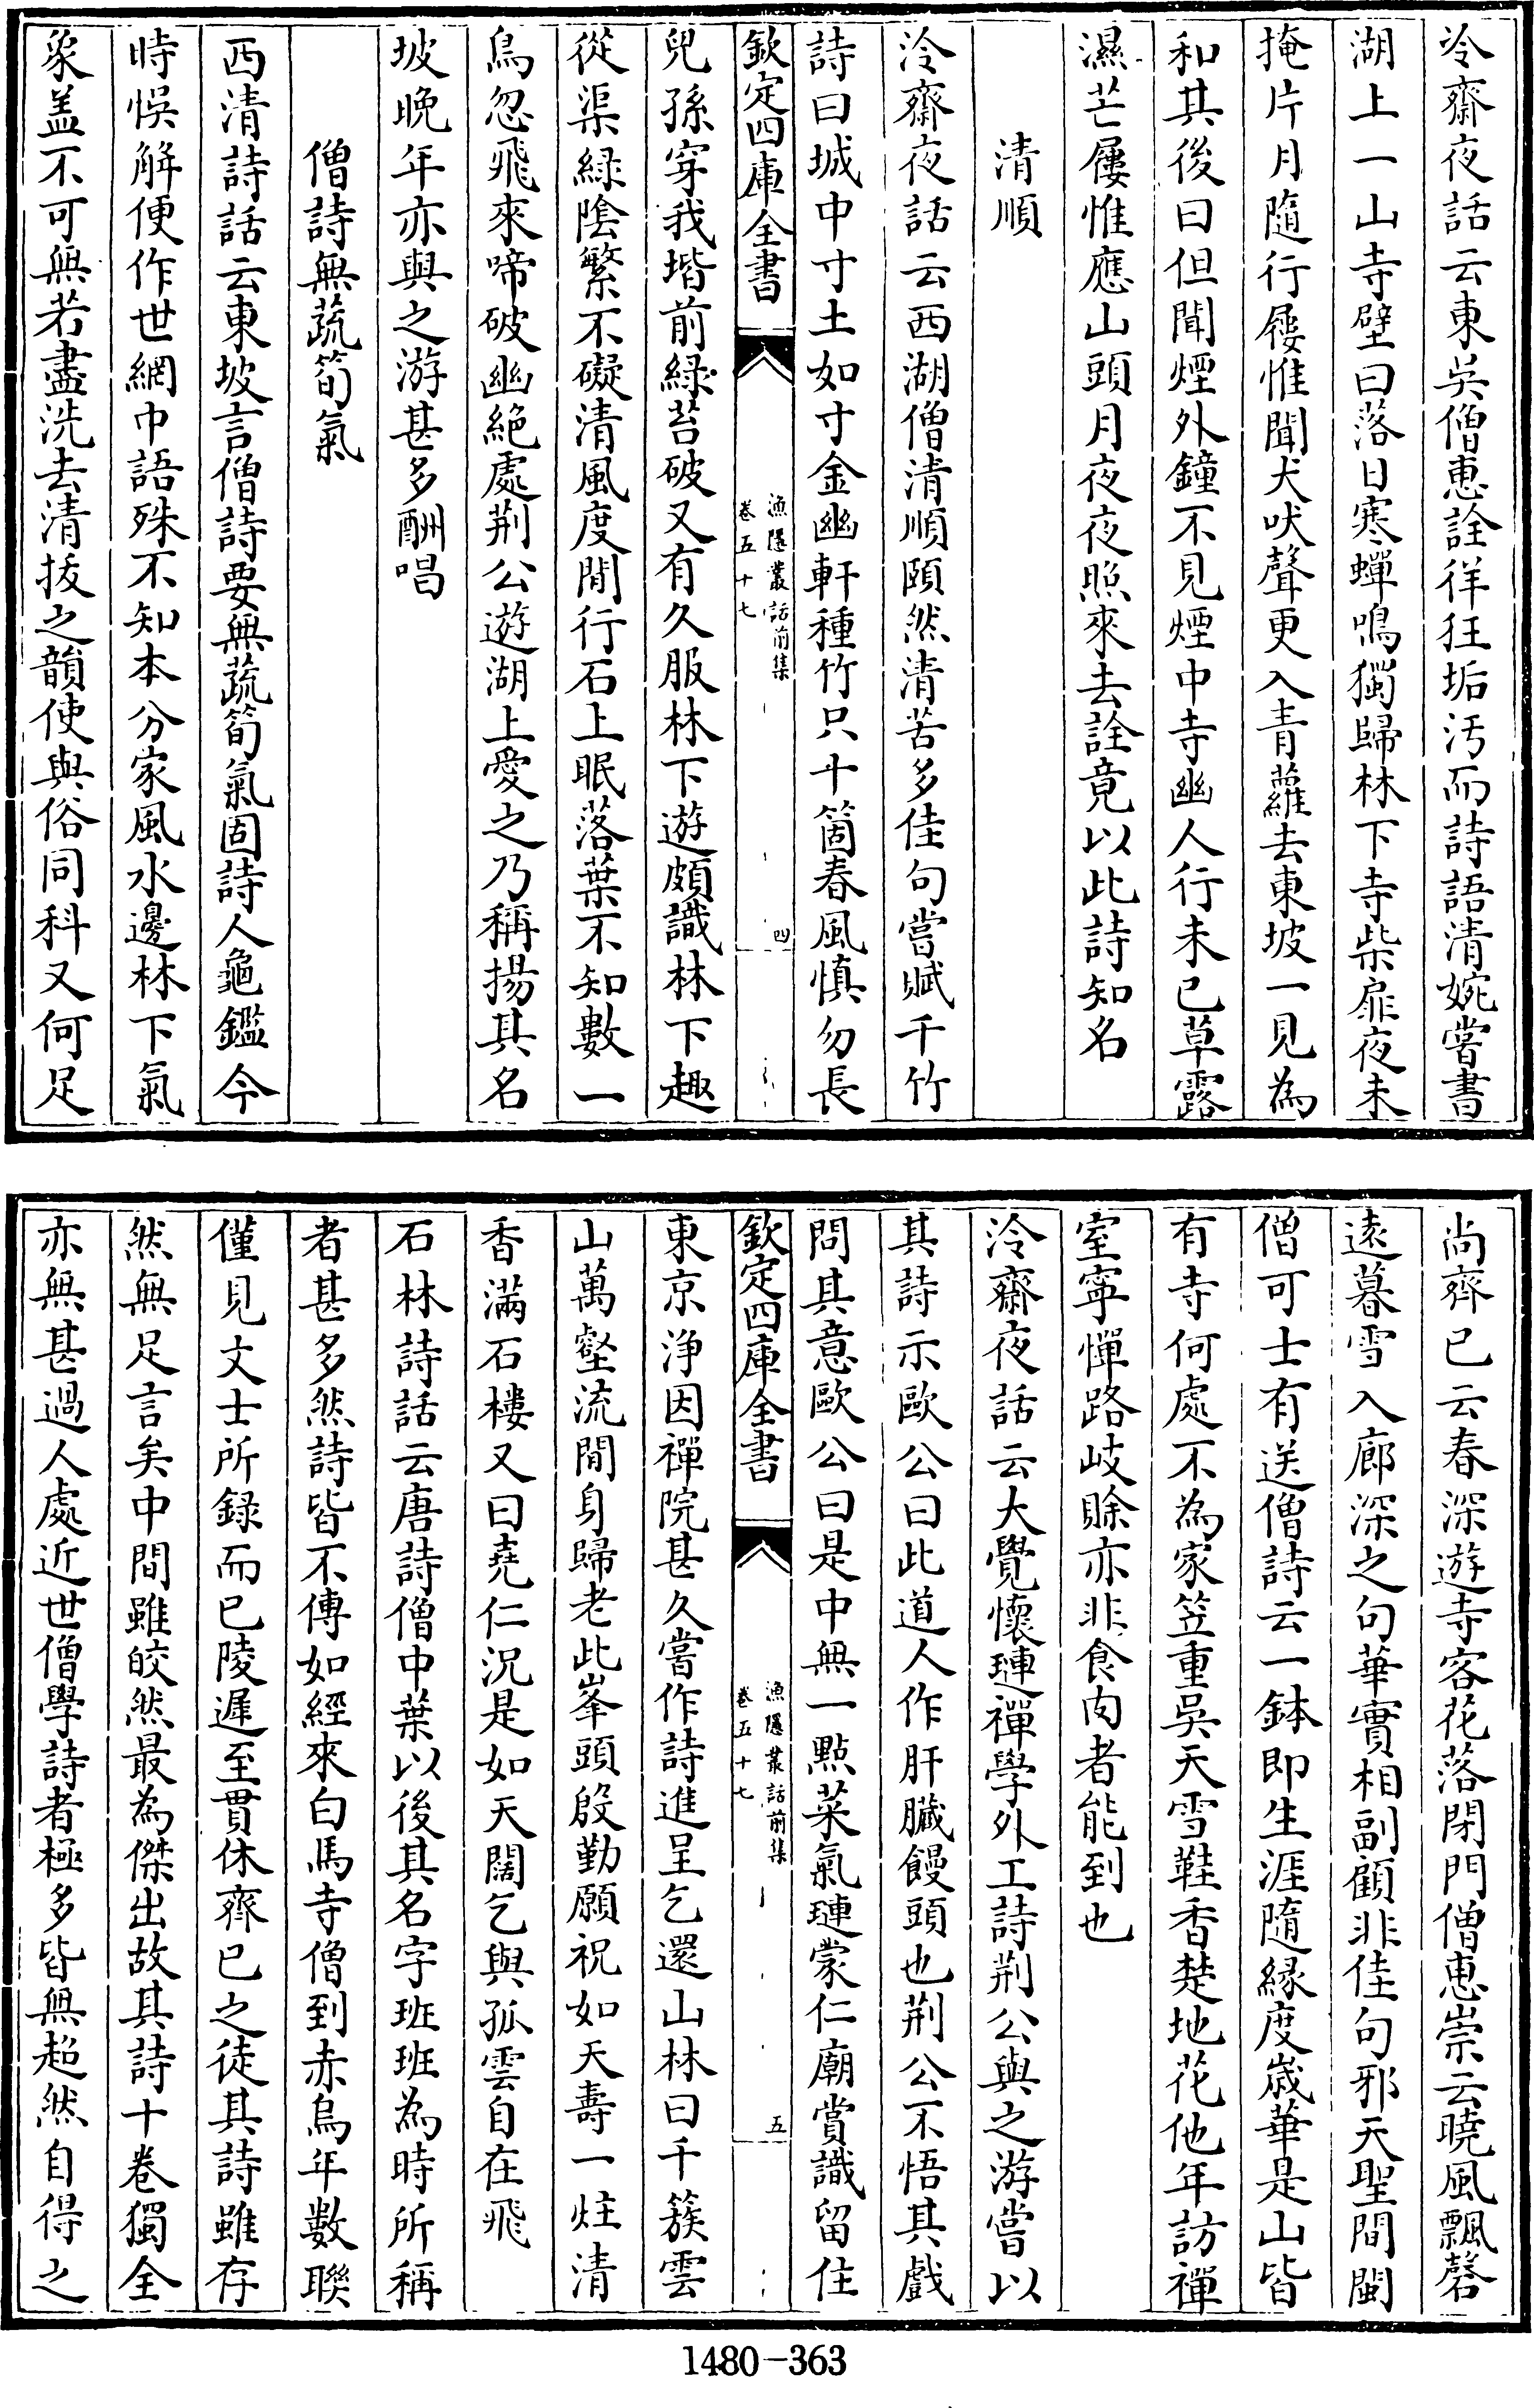 冷齋夜話云東吳僧惠詮徉狂垢汚而詩語清婉嘗書
湖上一山寺壁曰落日寒蟬鳴獨歸林下寺柴扉夜未
掩片月隨行屨惟聞犬吠聲更入青蘿去東坡一見為
和其後曰但聞煙外鐘不見煙中寺幽人行未已草露
濕芒屨惟應山頭月夜夜照來去詮竟以此詩知名
清順
泠齋夜話云西湖僧清順頤然清苦多佳句嘗賦千竹
詩曰城中寸土如寸金幽軒種竹只十箇春風慎勿長
欽定四庫全書
漁隱叢話前集
卷五十七
四
兒孫穿我堦前綠苔破又有久服林下遊頗識林下趣
從渠綠陰繁不礙清風度閒行石上眠落葉不知數一
鳥忽飛來啼破幽絕處荆公遊湖上愛之乃稱揚其名
坡晚年亦與之游甚多酬唱
僧詩無蔬筍氣
西清詩話云東坡言僧詩要無蔬筍氣固詩人龜鑑今
時悞解便作世網中語殊不知本分家風水邊林下氣
象盖不可無若盡洗去清拔之韻使與俗同科又何足
尚齊已云春深遊寺客花落閉門僧惠崇云曉風飄磬
遠暮雪入廊深之句華實相副顧非佳句邪天聖間閩
僧可士有送僧詩云一鉢即生涯隨緣度歲華是山皆
有寺何處不為家笠重吳天雪鞋香楚地花他年訪禪
室寧憚路岐賒亦非食肉者能到也
泠齋夜話云大覺懷璉禪學外工詩荆公與之游嘗以
其詩示歐公曰此道人作肝臟饅頭也荆公不悟其戲
問其意歐公曰是中無一點菜氣璉蒙仁廟賞識留住
欽定四庫全書
漁隱叢話前集
卷五十七
五
東京淨因禪院甚久嘗作詩進呈乞還山林曰千簇雲
山萬壑流閒身歸老此峯頭殷勤願祝如天壽一炷清
香滿石樓又曰堯仁況是如天闊乞與孤雲自在飛
石林詩話云唐詩僧中葉以後其名字班班為時所稱
者甚多然詩皆不傳如經來白馬寺僧到赤烏年數聯
僅見文士所録而已陵遲至貫休齊已之徒其詩雖存
然無足言矣中間雖皎然最為傑出故其詩十卷獨全
亦無甚過人處近世僧學詩者極多皆無超然自得之
1480-363